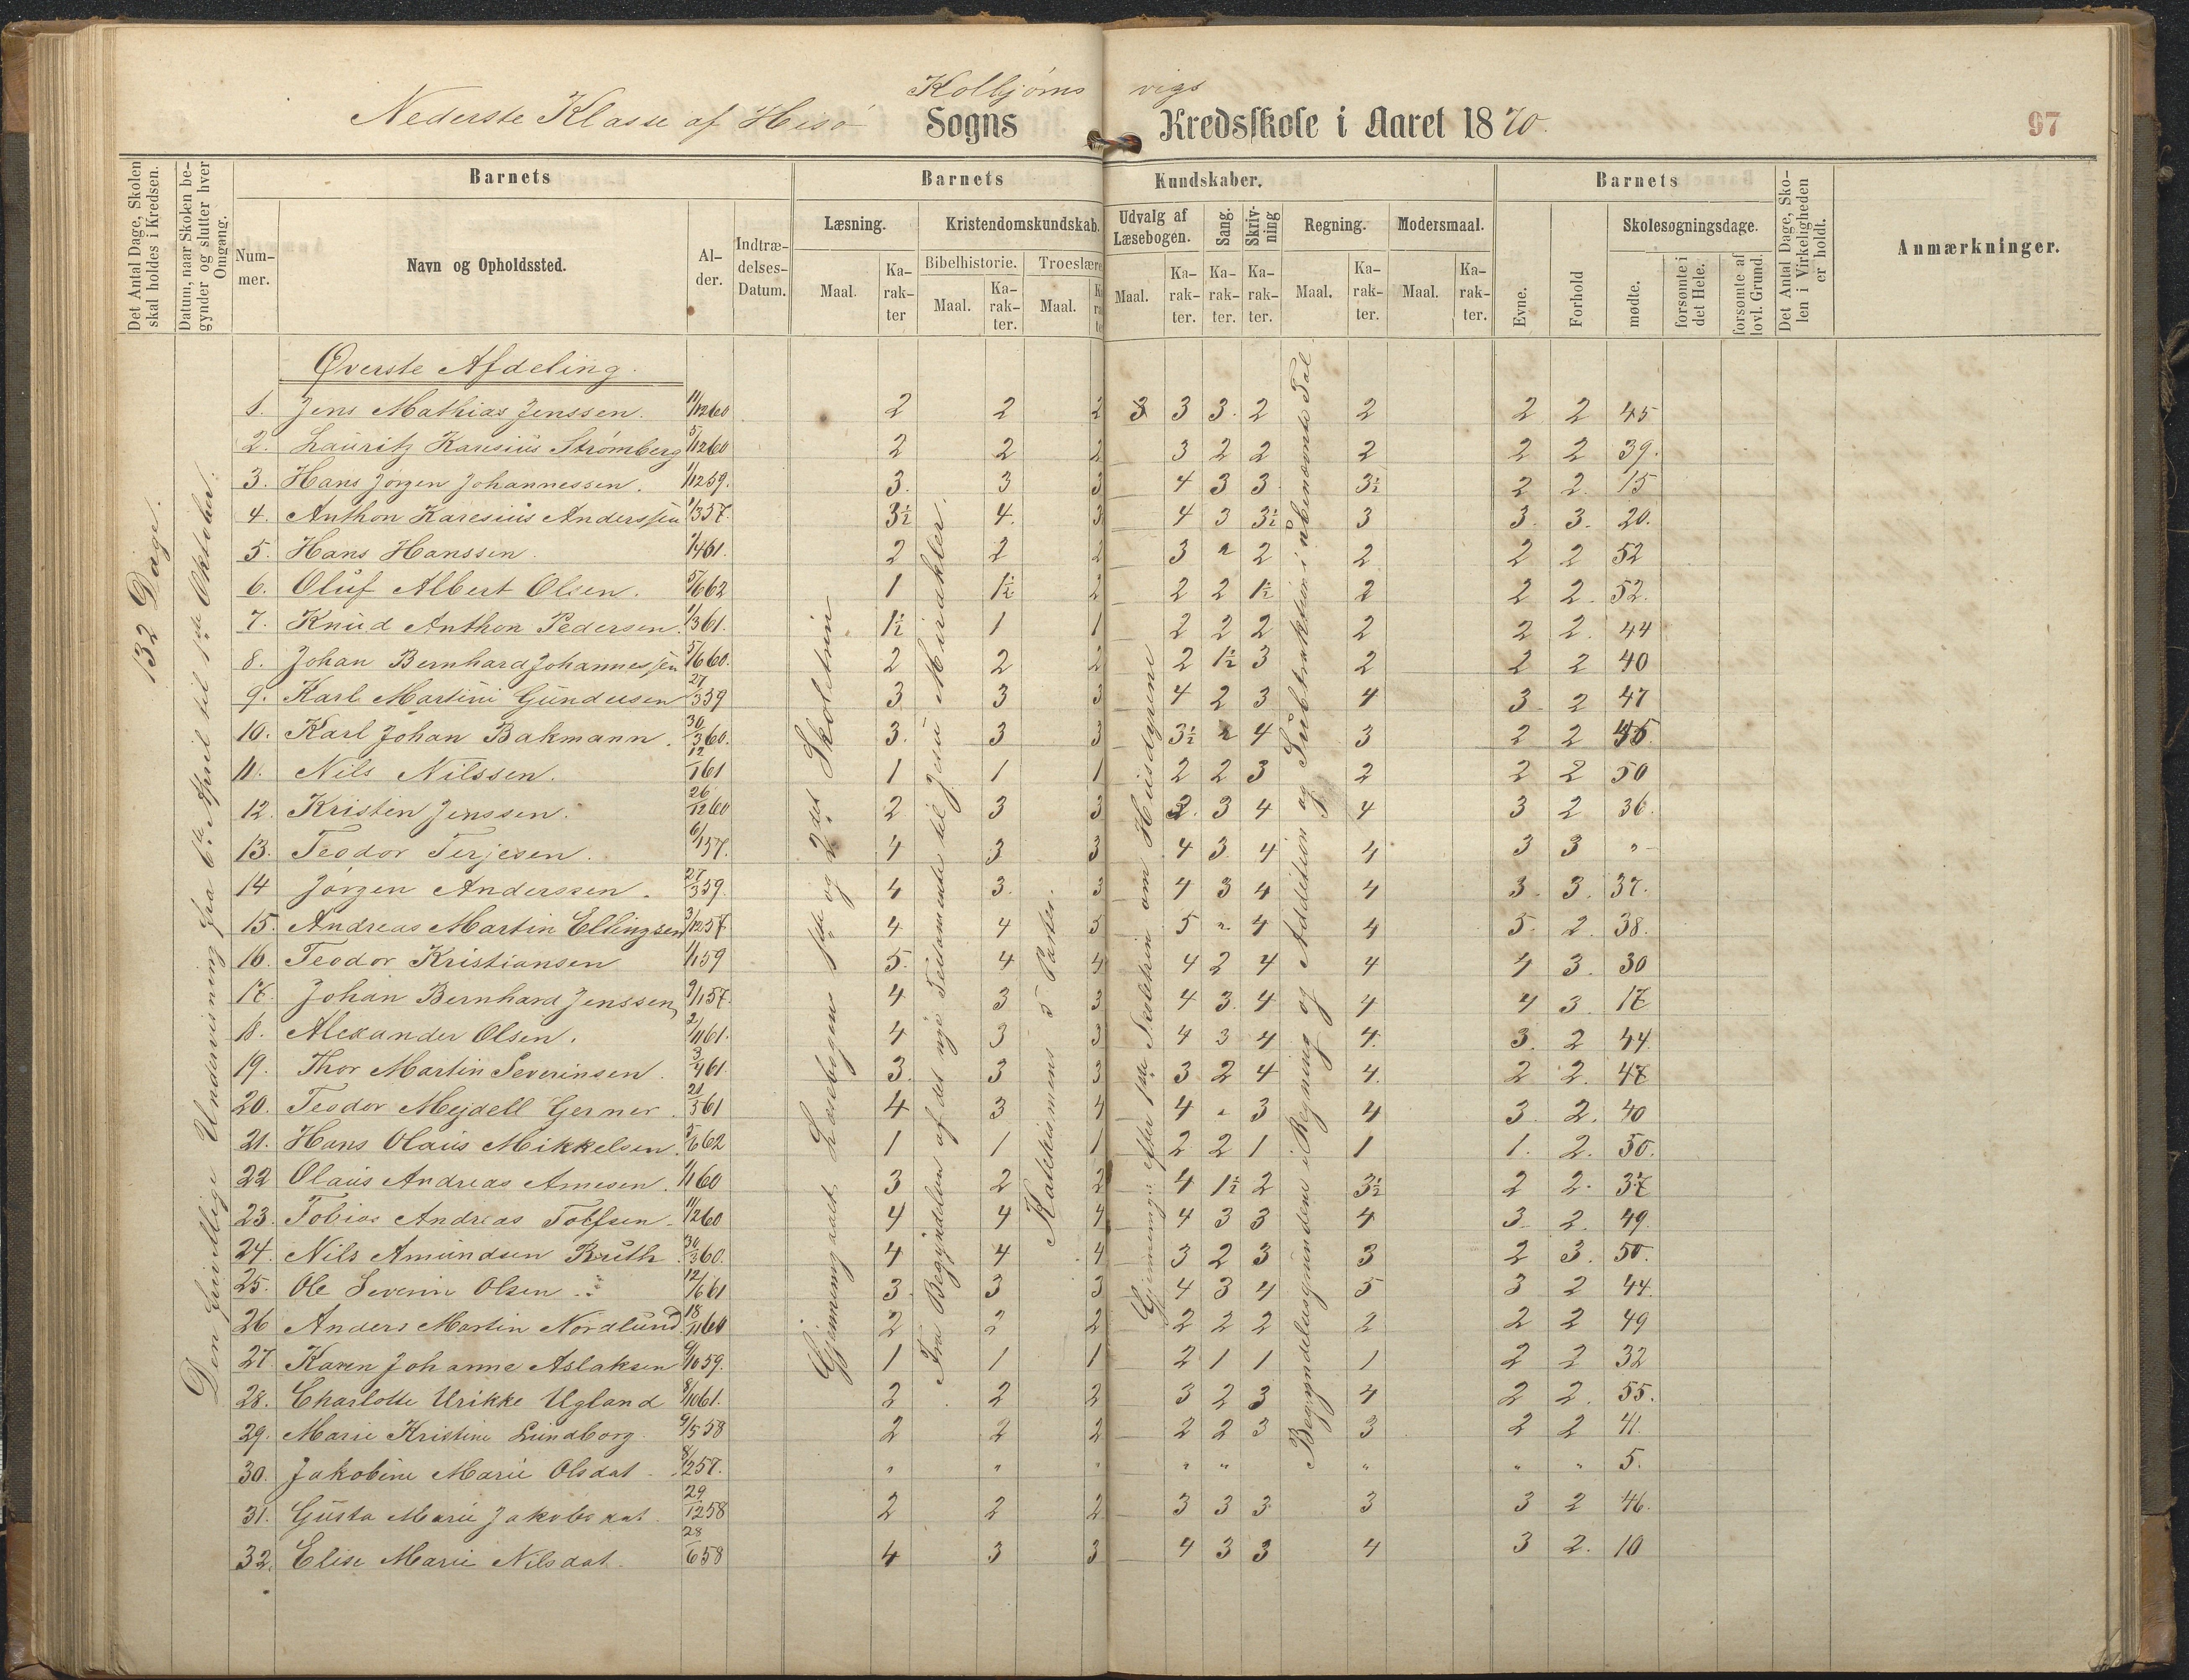 Nederste Klasse af Hisø Kolbjørnsvigs Sogns Kredsskole i Aaret 1870.
97
Det Antal Dage, Skolen skal holdes i Kredsen.
Datum, naar Skolen begynder og slutter hver Omgang.
Barnets
Nummer.
Navn og Opholdssted.
Alder.
Indtrædelses-Datum.
Barnets Kundskaber.
Læsning.
Maal.
Karakter
Kristendomskundskab.
Bibelhistorie.
Maal.
Karakter.
Troeslære
Maal.
Udvalg af Læsebogen.
Maal.
Karakter.
Sang.
Karakter.
Skrivning
Karakter.
Regning.
Maal.
Karakter.
Modersmaal.
Maal.
Karakter.
Barnets
Evne.
Forhold
Skolesøgningsdage.
mødte.
forsømte i det Hele.
forsømte af lovl. Grund.
Det Antal Dage, Skolen i Virkeligheden er holdt.
Anmærkninger.
132 Dage.
Den frivillige Undervisning fra 6te April til 1ste Oktober.
Gjennemgaaet Læsebogens 1ste og 2det Skoletrin
Fra Begyndelsen af det nye Testamente til Jesu Mirakler.
Katekismens 5 Parter.
Gjennemg. efter 1ste Skoletrin om Husdyrene
Begyndelsesgrundene i Regning og Addition og Subtraktion i ubenævnte Tal
Øverste Afdeling.
1. Jens Mathias Jenssen. 11/12 60 2 2 2 3 3 3. 2 2 2 2 45
2. Lauritz Karesius Strømberg 5/12 60 2 2 2 3 2 2 2 2 2 39.
3. Hans Jørgen Johannessen. 1/12 59. 3. 3 3 4 3 3 3½ 2 2. 15
4. Anthon Karesius Anderssen 1/3 57. 3½ 4. 3 4 3 3½ 3 3. 3. 20.
5. Hans Hanssen. 1/4 61. 2 2 2 3 " 2 2 2 2 52
6. Oluf Albert Olsen. 5/6 62 1 1½ 2 2 2 1½ 2 2 2. 52.
7. Knud Anthon Pedersen. 1/3 61. 1½ 1 1 2 2 2 2 2 2. 44
8. Johan Bernhard Johannessen 5/6 60. 2 2 2 2 1½ 3 2 2 2 40
9. Karl Martini Gundersen 27/3 59 3 3 3 4 2 3 4 3 2 47
10. Karl Johan Bakmann. 30/3 60. 3. 3 3 3½ " 4 3 2 2 45.
11. Nils Nilssen. 12/1 61 1 1 1 2 2 3 2 2 2 50
12. Kristen Jenssen. 26/12 60 2 3 3 2. 3 4 4 3 2 36.
13. Teodor Terjesen. 6/1 57. 4 3 3 4 3 4 4 3 3 "
14 Jørgen Anderssen. 27/3 59. 4 3. 3 4 3 4 4 3. 3. 37.
15. Andreas Martin Ellingsen 3/12 57 4 4 5 5 " 4 4 5. 2. 38.
16. Teodor Kristiansen 1/1 59 5. 4 4 4 2 4 4 4 3. 30
17. Johan Bernhard Jenssen 9/1 57. 4 3 3 4 3. 4 4 4 3. 17
18. Alexander Olsen. 2/11 61. 4 3 3 4 3 4 4. 3. 2 44
19. Thor Martin Severinsen. 3/4 61. 3. 3 3 3 2 4 4. 2 2. 47
20. Teodor Mejdell Gerner. 21/5 61 4 3 4 4 " 3 4 3. 2. 40
21. Hans Olaus Mikkelsen. 5/6 62 1 1 1 2 2 1 1 1. 2. 50.
22 Olaus Andreas Arnesen. 1/1 60 3 2 2 4 1½ 2 3½ 2 2. 37
23. Tobias Andreas Tolfsen. 11/12 60 4 4 4 4 3 3 4 3. 2. 49.
24. Nils Amundsen Bruth. 30/3 60. 4 4 4 3 2 3 3 2 3. 50.
25. Ole Severin Olsen 12/6 61 3. 3 3 4 3 4 5 3 2 44.
26 Anders Martin Nordlund. 18/11 60 2 2 2 2 2 2 2 2 2 49
27. Karen Johanne Aslaksen 9/10 59. 1 1 1 2 1 1 1 2 2 32
28. Charlotte Urikke Ugland 8/10 61. 2 2 2 3 2 3 4 2 2. 55.
29. Marie Kristine Lundborg. 9/5 58 2 2 2 2 2 3 3 2 2 41.
30. Jakobine Marie Olsdat. 8/2 57. " " " " " " " " 5.
31. Gusta Marie Jakobsdat. 29/12 58 2 2 2 3 3 3 3 3 2 46.
32. Elise Marie Nilsdat. 28/6 58 4 3 3 4 3 3 4 3 2. 10